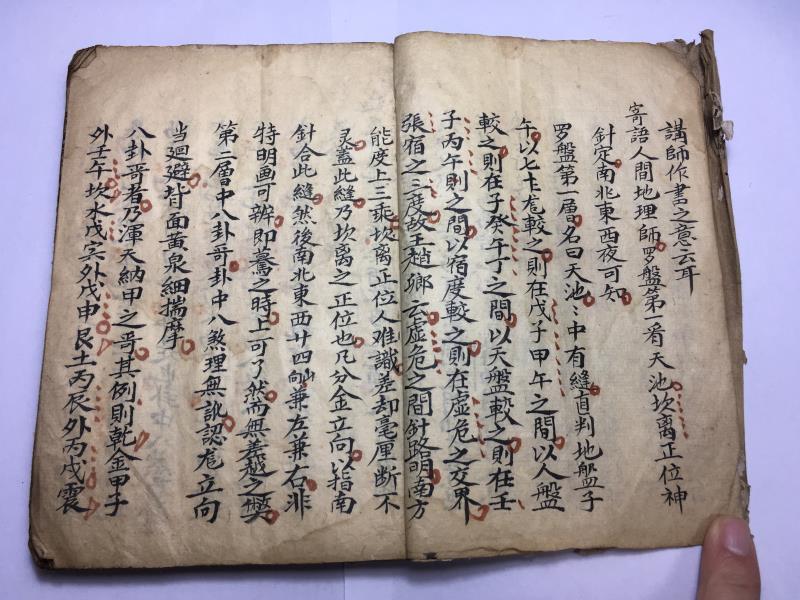 講師作書之意云耳
寄語人間地理師罗盤第一看天池坎离正位神
針定南北東西夜可知
罗盤第一層名曰天池〻中有縫直判地盤子
午以七十龙較之則在戊子甲午之間以人盤
較之則在子癸午丁之間以天盤較之則在壬
子丙午則之間以宿度較之則在虚危之交界
張宿之三度故王趙鄉云虚危之間針路明南方
能度上三乘坎离正位人难識差却毫厘断不
灵盖此縫乃坎离之正位也凡分金立向以指南
針合此縫然後南北東西廿四山兼左兼右非
特明画可辨即驀之時上可了然而無差越之弊
第二層中八卦哥卦中八煞理無訛認龙立向
当廻避背面黄泉細揣摩
八卦哥者乃渾天納甲之哥其例則乾金甲子
外壬午坎水戊寅外戊申艮土丙辰外丙戌震